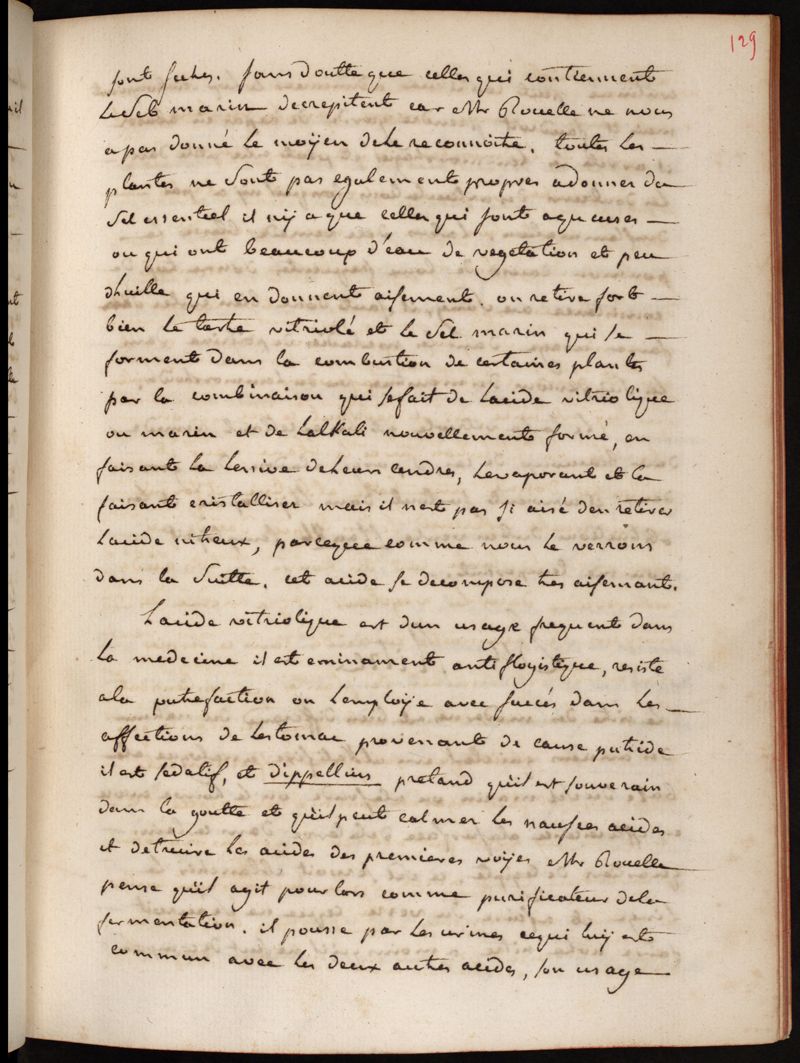 129
sont seches. sans doutte que celles qui contiennent
le sel marin decrepitent car Mr Rouelle ne nous
a pas donné le moÿen de le reconnoitre. toutes les
plantes ne sont pas egalement propres a donner du
sel essentiel il nÿ a que celles qui sont aqueuses
ou qui ont beaucoup d'eau de vegetation et peu
dhuille qui en donnent aisement. on retire fort
bien le tartre vitriolé et le sel marin qui se
forment dans la combustion de certaines plantes
par la combinaison qui se fait de lacide vitriolique
ou marin et de lalkali nouvellement formé, en
faisant la lessive de leurs cendres, levaporant et la
faisant cristalliser mais il nest pas si aisé den retirer
lacide nitreux, parceque comme nous le verrons
dans la suitte. cet acide se decompose tres aisemant.
Lacide vitriolique est dun usage frequent dans
la medecine il est eminament antiflogistique, resiste
a la putrefaction on lemploÿe avec succés dans les
affections de lestomac provenant de cause putride
il est sedatif, et dippellius pretand qu'il est souverain
dans la goutte et qu'il peut calmer les nausées acides
et detruire les acides des premieres voÿes Mr Rouelle
pense qu'il agit pour lors comme purificateur de la
fermentation. il pousse par les urines ce qui luÿ est
commun avec les deux autres acides, son usage